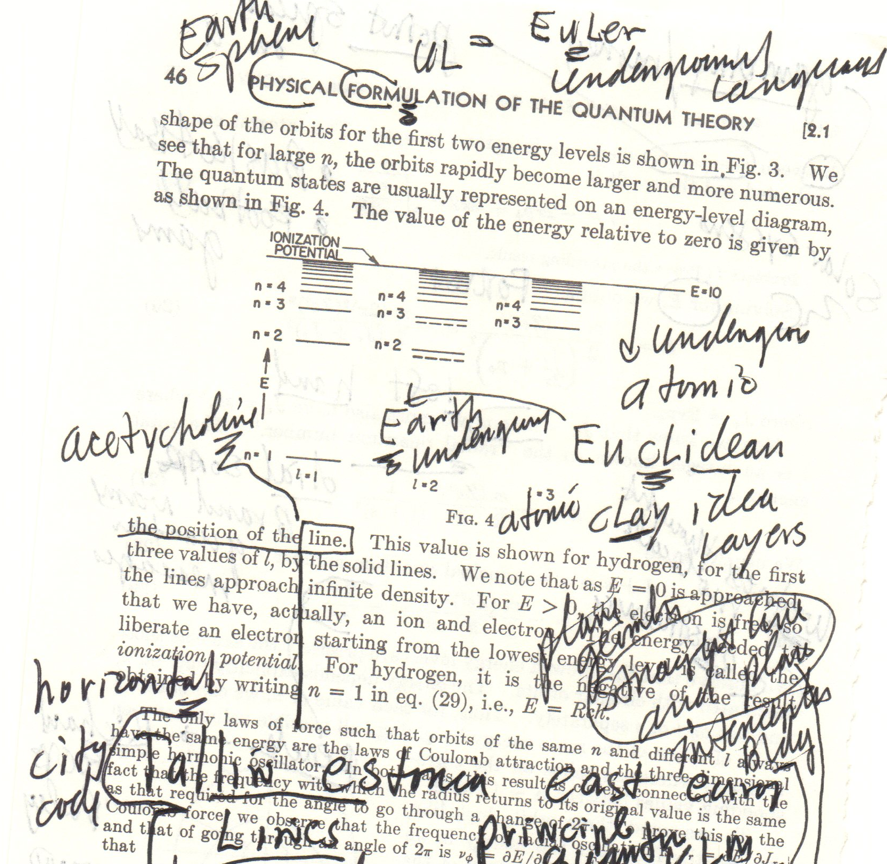 Earth
Sphere
UL = Euler
underground
Language
46 PHYSICAL FORMULATION OF THE QUANTUM THEORY [2.1
shape of the orbits for the first two energy levels is shown in Fig. 3. We
see that for large n, the orbits rapidly become larger and more numerous.
The quantum states are usually represented on an energy-level diagram,
as shown in Fig. 4. The value of the energy relative to zero is given by
IONIZATION
POTENTIAL
E=10
n=4
n=3
n=2
n=4
n=3
n=2
n=4
n=3
E
n=1
l=1
l=2
l=3
underground
atomic
acetycholine
Earth
underground
Euclidean
FIG. 4
atomic clay idea
Layers
the position of the line. This value is shown for hydrogen, for the first
three values of l, by the solid lines. We note that as E = 0 is approached
the lines approach infinite density. For E > 0, the electron is free, so
that we have, actually, an ion and electron. energy needed to
liberate an electron starting from the lowest energy level is called the
ionization potential. For hydrogen, it is the negative of the result
obtained by writing n = 1 in eq. (29), i.e., E = Rch.
plane
straight line
and plan
intercepts
Bldg
horizontal
city
code
The only laws of force such that orbits of the same n and different l always
have the same energy are the laws of Coulomb attraction and the three-dimensional
simple harmonic oscillator. In this result is connected with the
fact that the frequency with which the radius returns to its original value is the same
as that required for the angle to go through a change of 2π. prove this for the
Coulomb force, we observe that the frequency radial oscillation
and that of going through an angle of 2π is
that
Tallin estonea east europ
Lines
principle
quantum